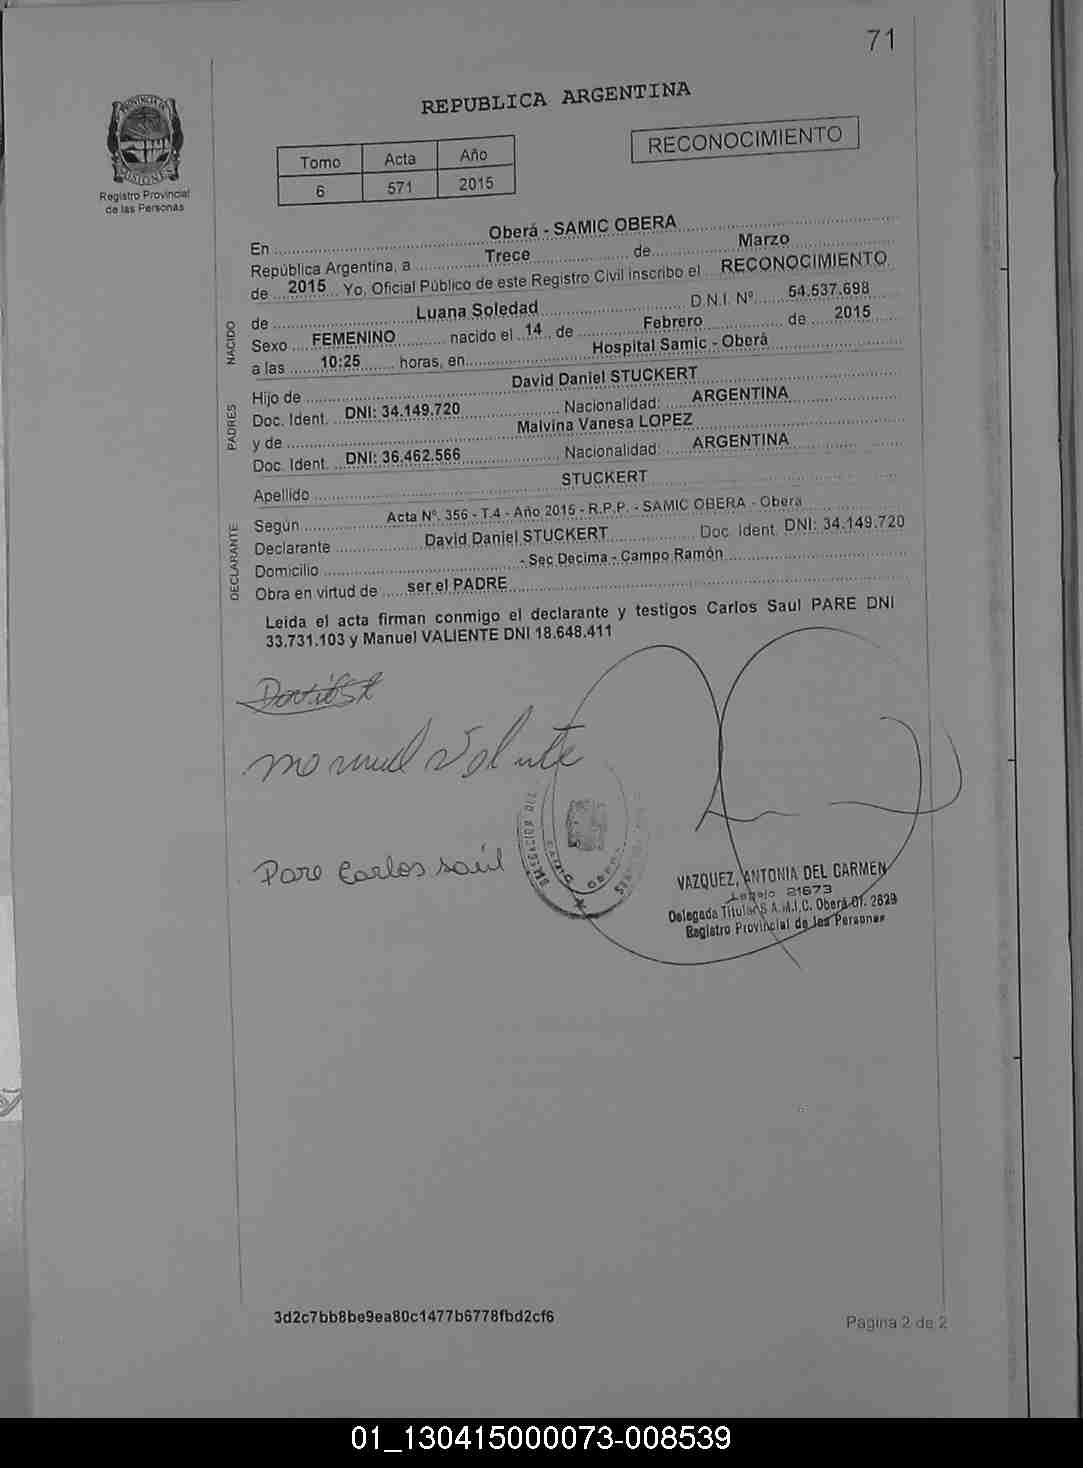 71
REPUBLICA ARGENTINA
RECONOCIMIENTO
Tomo Acta Año
6 571 2015
PROVINCIA DE
MISIONES
Registro Provincial
de las Personas
En Oberá - SAMIC OBERA
República Argentina, a Trece de Marzo
de 2015 Yo, Oficial Público de este Registro Civil inscribo el RECONOCIMIENTO
NACIDO
de Luana Soledad D.N.I. Nº 54.537.698
Sexo FEMENINO nacido el 14 de Febrero de 2015
a las 10:25 horas, en Hospital Samic - Oberá
PADRES
Hijo de David Daniel STUCKERT
Doc. Ident. DNI: 34.149.720 Nacionalidad: ARGENTINA
y de Malvina Vanesa LOPEZ
Doc. Ident. DNI: 36.462.566 Nacionalidad: ARGENTINA
Apellido STUCKERT
DECLARANTE
Según Acta Nº. 356 - T.4 - Año 2015 - R.P.P. - SAMIC OBERA - Obera
Declarante David Daniel STUCKERT Doc. Ident. DNI: 34.149.720
Domicilio - Sec Decima - Campo Ramón
Obra en virtud de ser el PADRE
Leida el acta firman conmigo el declarante y testigos Carlos Saul PARE DNI
33.731.103 y Manuel VALIENTE DNI 18.648.411
Pare Carlos saúl
VAZQUEZ, ANTONIA DEL CARMEN
Legajo 21673
Delegada Titular S.A.M.I.C. Oberá Of. 2829
Registro Provincial de las Personas
3d2c7bb8be9ea80c1477b6778fbd2cf6
Pagina 2 de 2
01_130415000073-008539